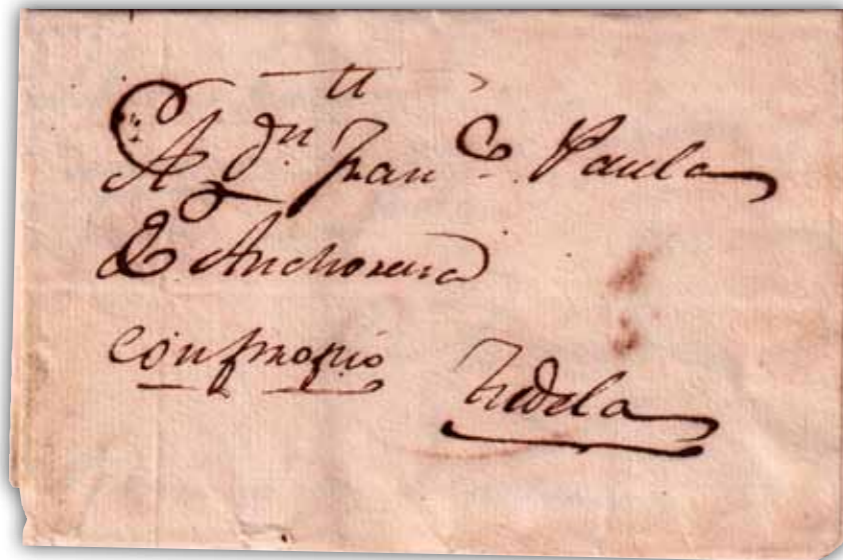 A Dn Franco Paula
D Anchorena
Con propio
Tudela